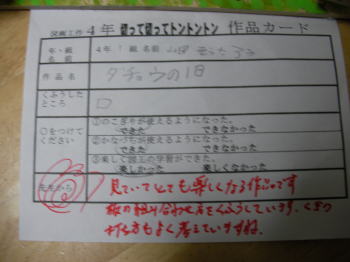 図画工作 4年 切って切ってトントントン 作品カード
年・組 名前
4年 1組 名前
作品名
ダチョウの1日
くふうした ところ
口
○をつけて ください
①のこぎりが使えるようになった。
できた できなかった
②かなづちが使えるようになった。
できた できなかった
③楽しく図工の学習ができた。
楽しかった 楽しくなかった
先生から
見ていてとても楽しくなる作品です
板の組み合わせ方をくふうしています。くぎの
打ち方もよく考えていますね。